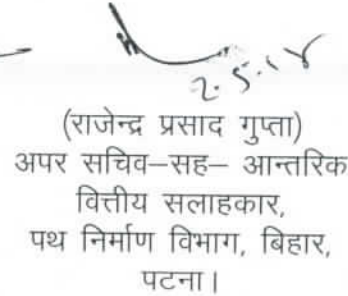 2.5.18
(राजेन्द्र प्रसाद गुप्ता)
अपर सचिव–सह– आन्तरिक
वित्तीय सलाहकार,
पथ निर्माण विभाग, बिहार,
पटना।